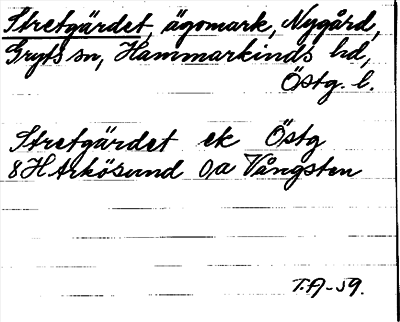 Stretgärdet, ägomark, Nygård,
Gryts sn, Hammarkinds hd,
Östg. l.
Stretgärdet ek Östg
8H Arkösund 0,a Vångsten
T.A-59.